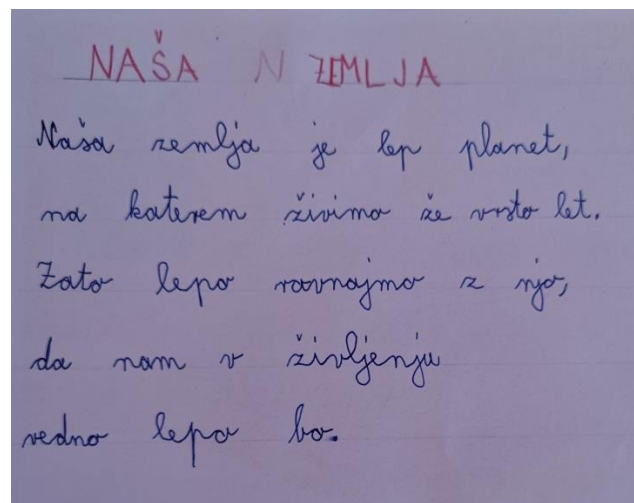 NAŠA N ZEMLJA
Naša zemlja je lep planet,
na katerem živimo že vrsto let.
Zato lepo ravnajmo z njo,
da nam v življenju
vedno lepo bo.